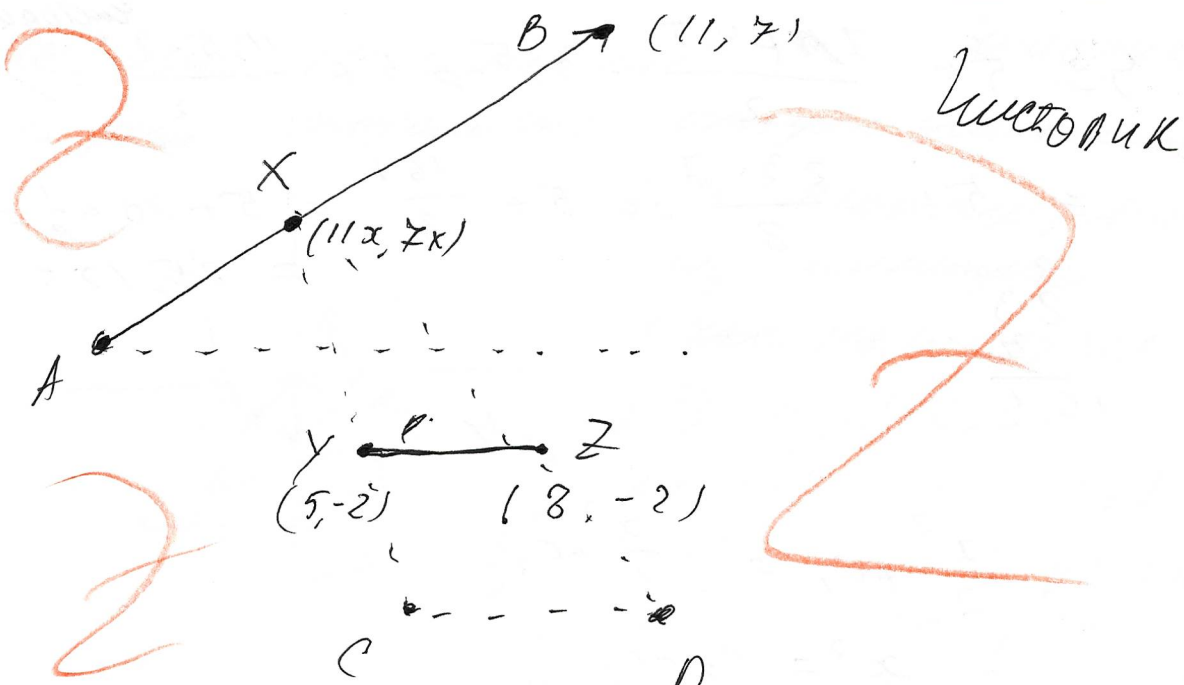 B (11, 7)
Чистовик
X
(11x, 7x)
A
Y Z
(5,-2) (8, -2)
C D